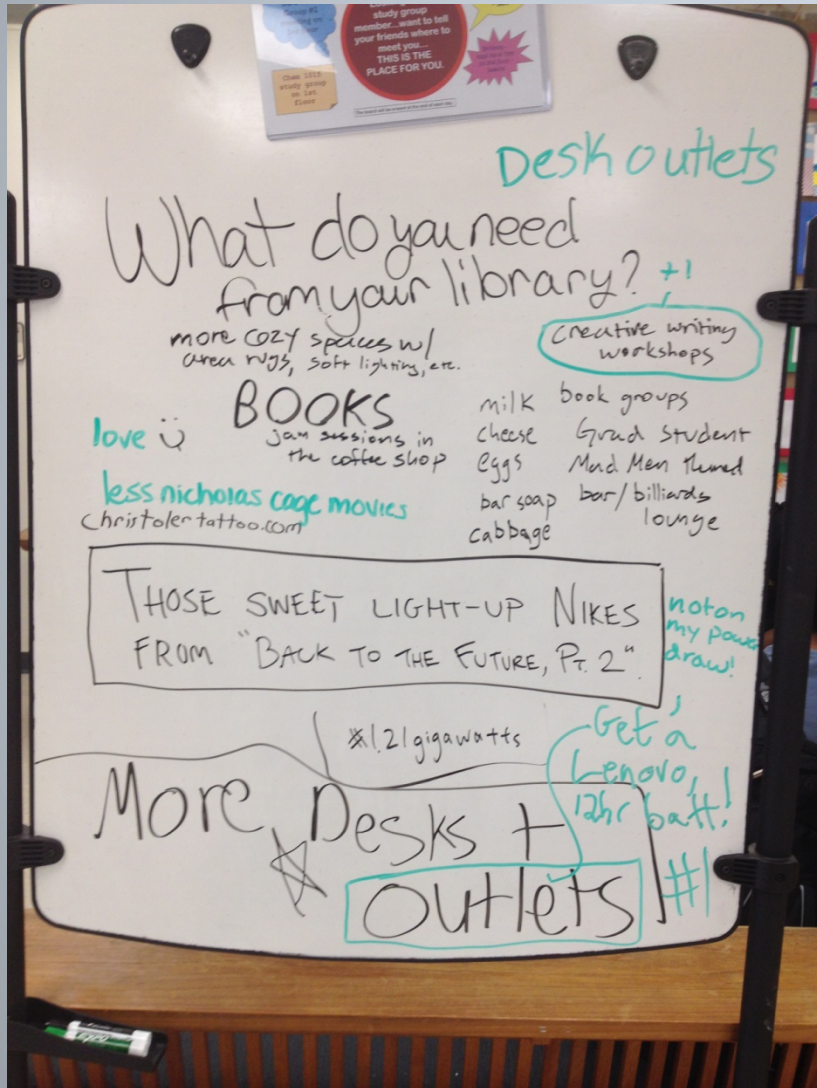 study group
member...want to tell
your friends where to
meet you...
THIS IS THE
PLACE FOR YOU.
Chem 1015
study group
on 1st
floor
Desk outlets
What do you need
from your library?
+1
more cozy spaces w/
area rugs, soft lighting, etc.
creative writing
workshops
BOOKS
love
jam sessions in
the coffee shop
less nicholas cage movies
christolertattoo.com
milk
cheese
eggs
bar soap
cabbage
book groups
Grad Student
Mad Men themed
bar/billiards
lounge
THOSE SWEET LIGHT-UP NIKES
FROM "BACK TO THE FUTURE, PT. 2".
not on
my power
draw!
*1.21 gigawatts
Get a
Lenovo,
12hr batt!
MORE Desks +
outlets
#1
expo